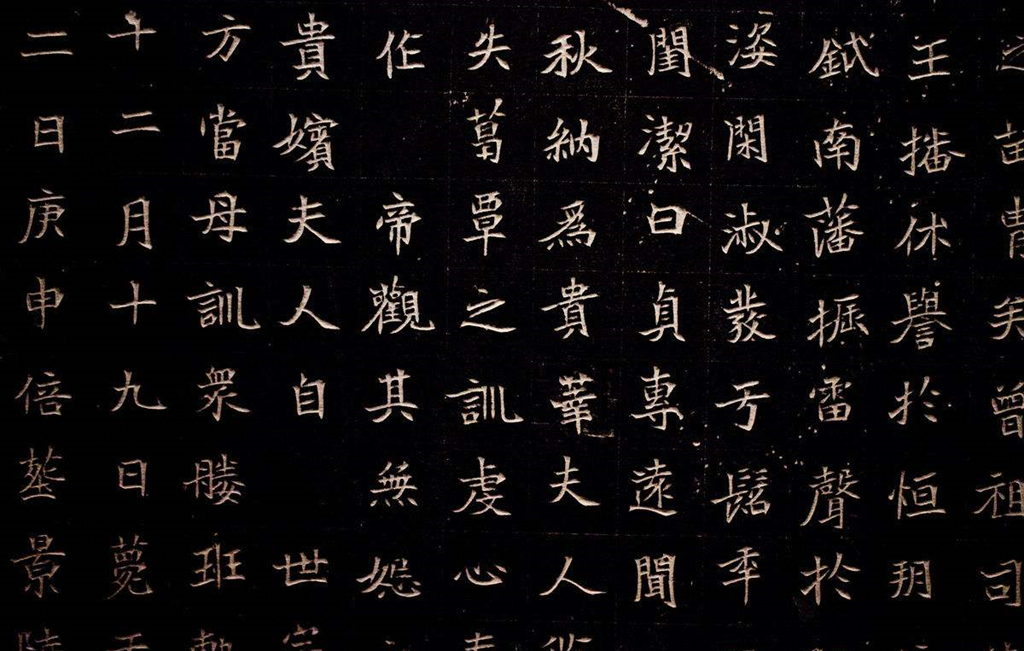 苗胄矣曾祖司
王播休譽於恒玥
鉞南藩掘雷聲於
姿閑淑發于髫年
閨潔曰貞專遠聞
秋納為貴華夫人
失葛覃之訓虔心
作 帝觀其無
貴嬪夫人自 世
方當母訓衆媵班
十二月十九日薨
二日庚申倍塟景